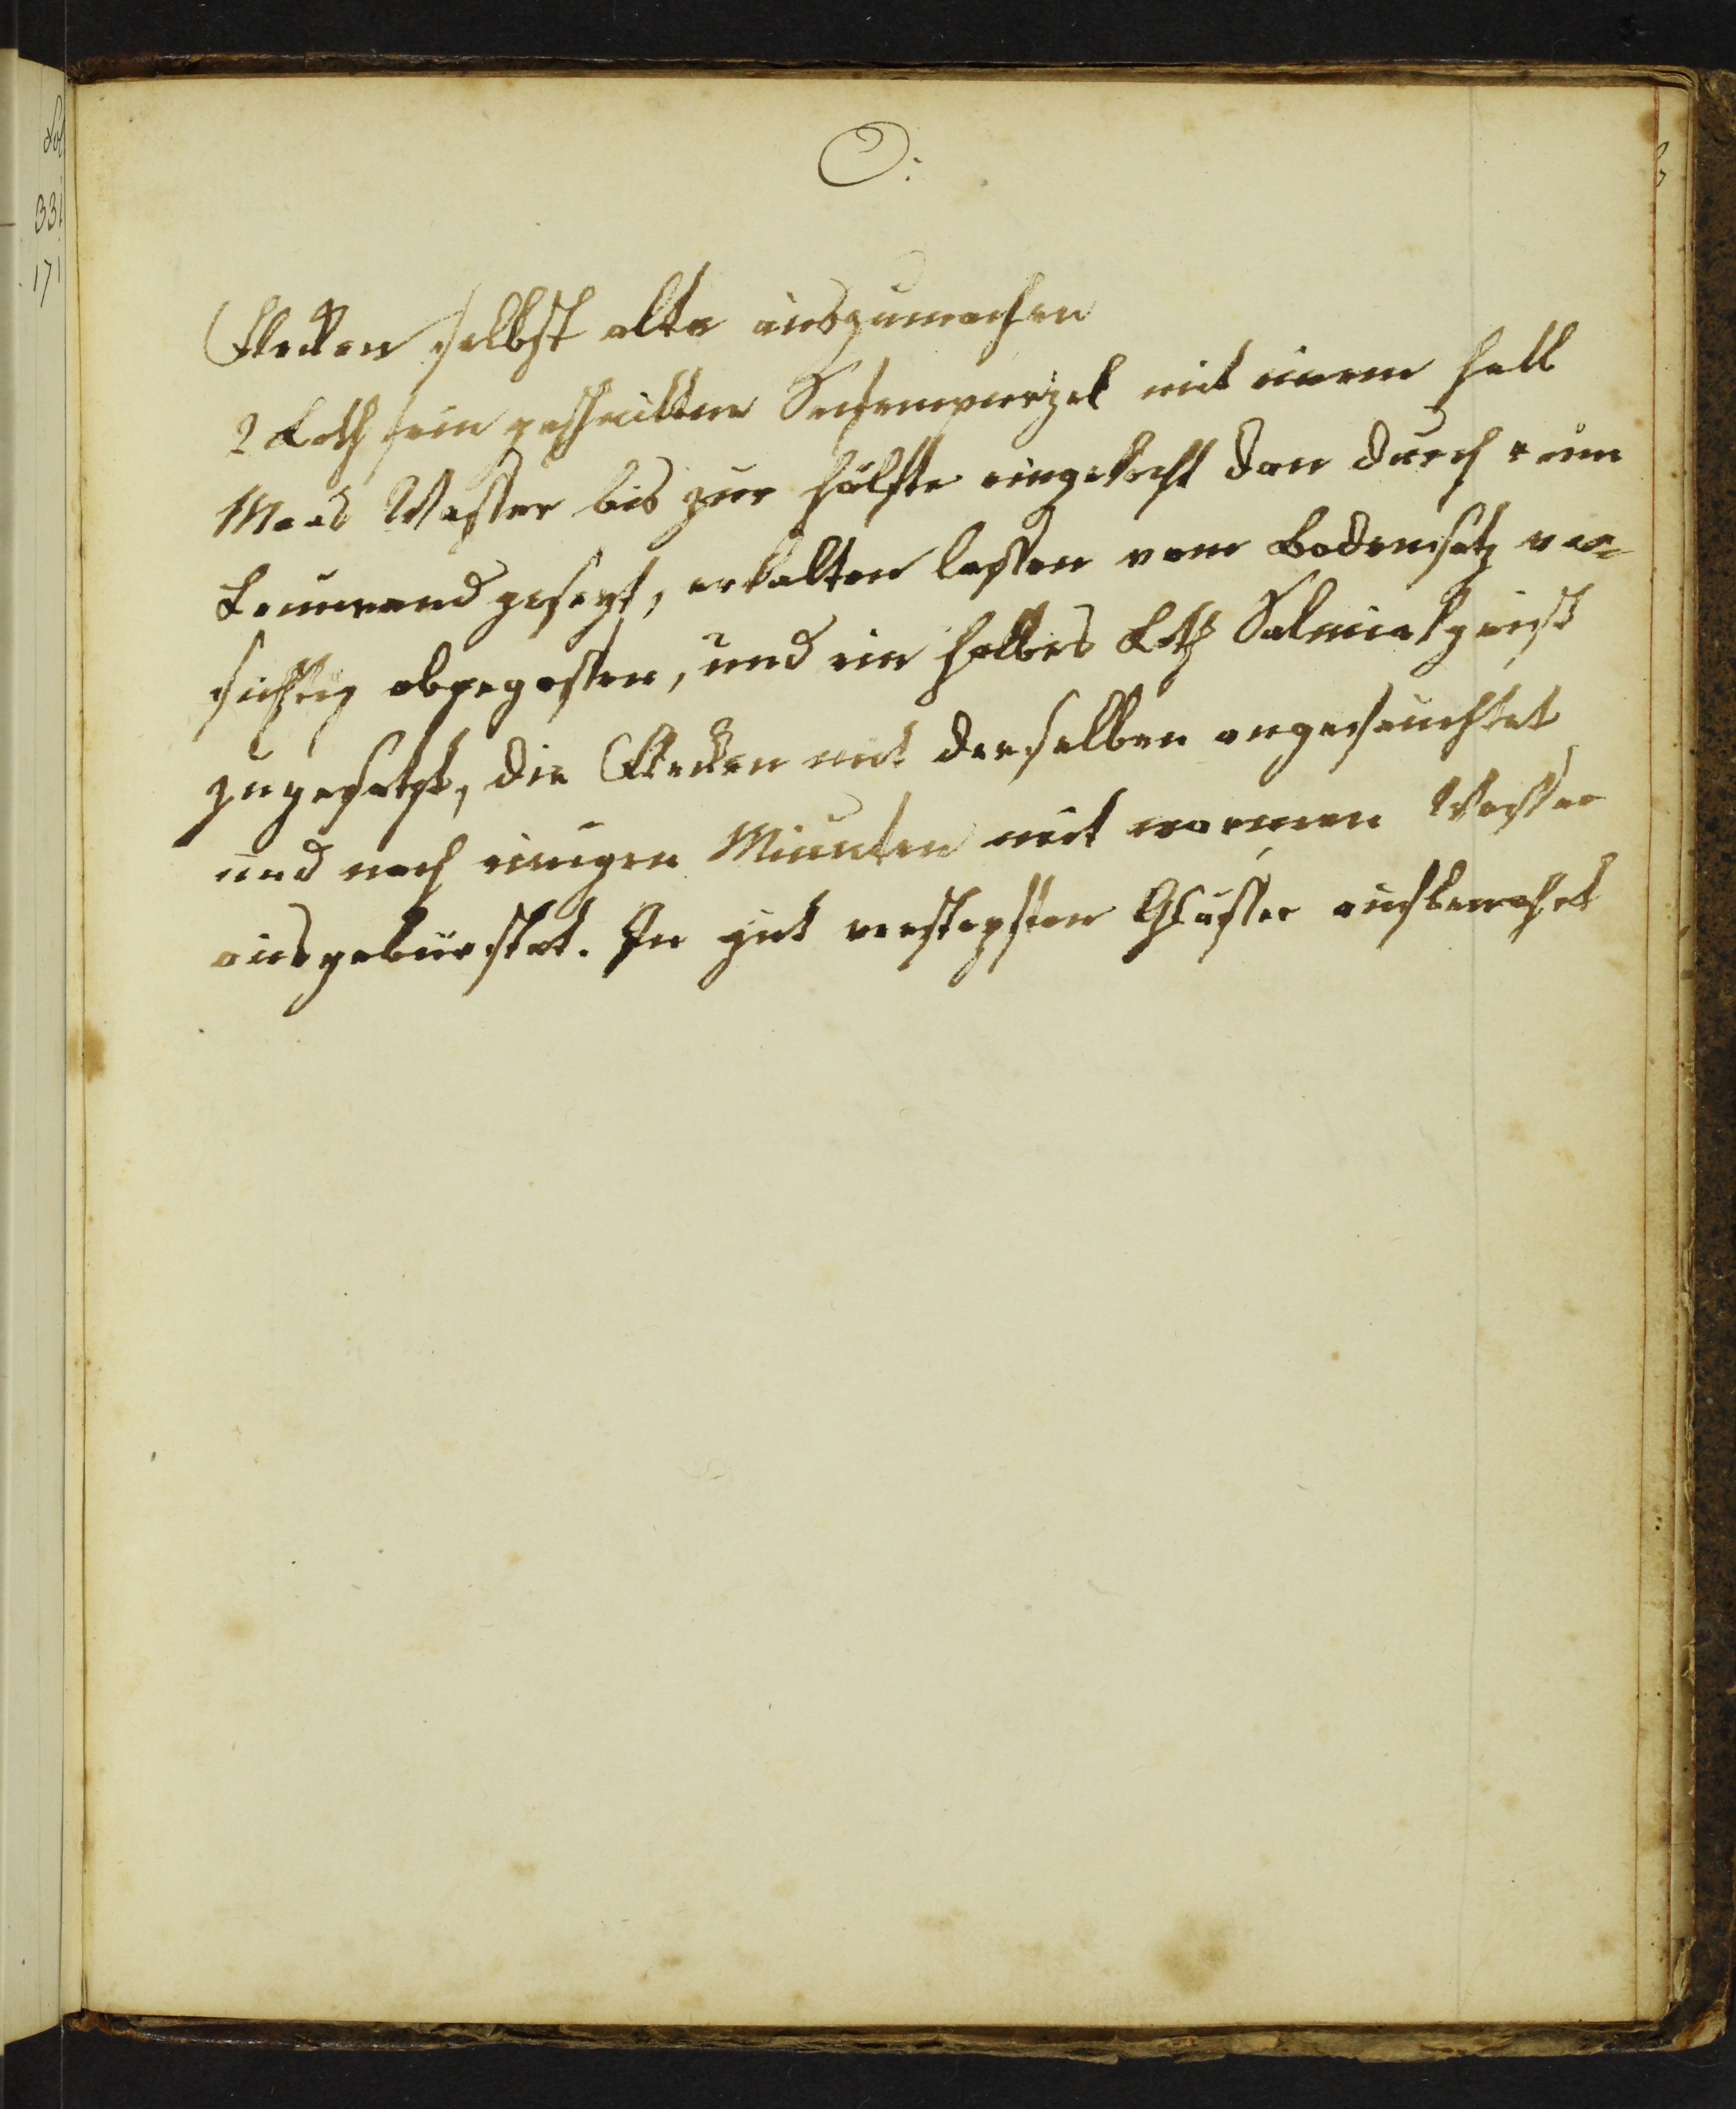 O:
Flecken selbst alte auszumachen
2 Loth fein geschnittene Seifenwurzel mit einem halb
Maas Wasser bis zur hälfte eingekocht dan durch reine
Leinwand geseigt, erkalten lassen vom Bodensatz vor-
sichtig abgegossen, und ein halbes Loth Salmiakgeist
zugesetzt, die Flecken mit derselben angefeuchtet
und nach einigen Minuten mit warmen Wasser
ausgebürstet. In gut verstopften Glässer aufbewahrt
331
171